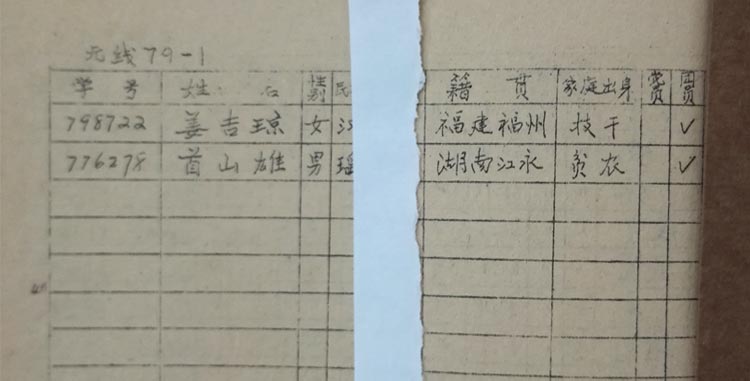 无线79-1
学号 姓名 性别 民 籍贯 家庭出身 党员 团员
798722 姜吉琼 女 汉 福建福州 技干 ✓
776278 首山雄 男 瑶 湖南江永 贫农 ✓